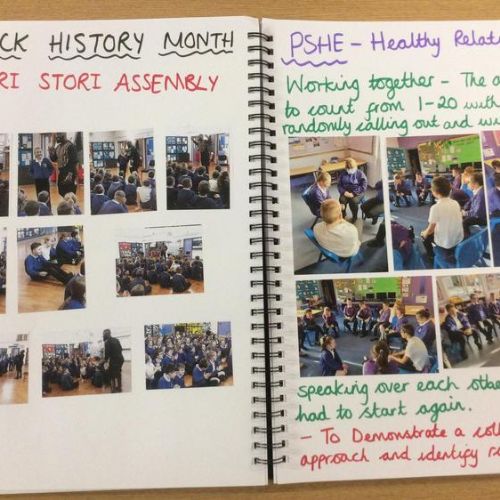 CK HISTORY MONTH
RI STORI ASSEMBLY
PSHE - Healthy Relat
Working together - The a
to count from 1-20 with
randomly calling out and wi
speaking over each othe
had to start again.
- To Demonstrate a coll
approach and identify r